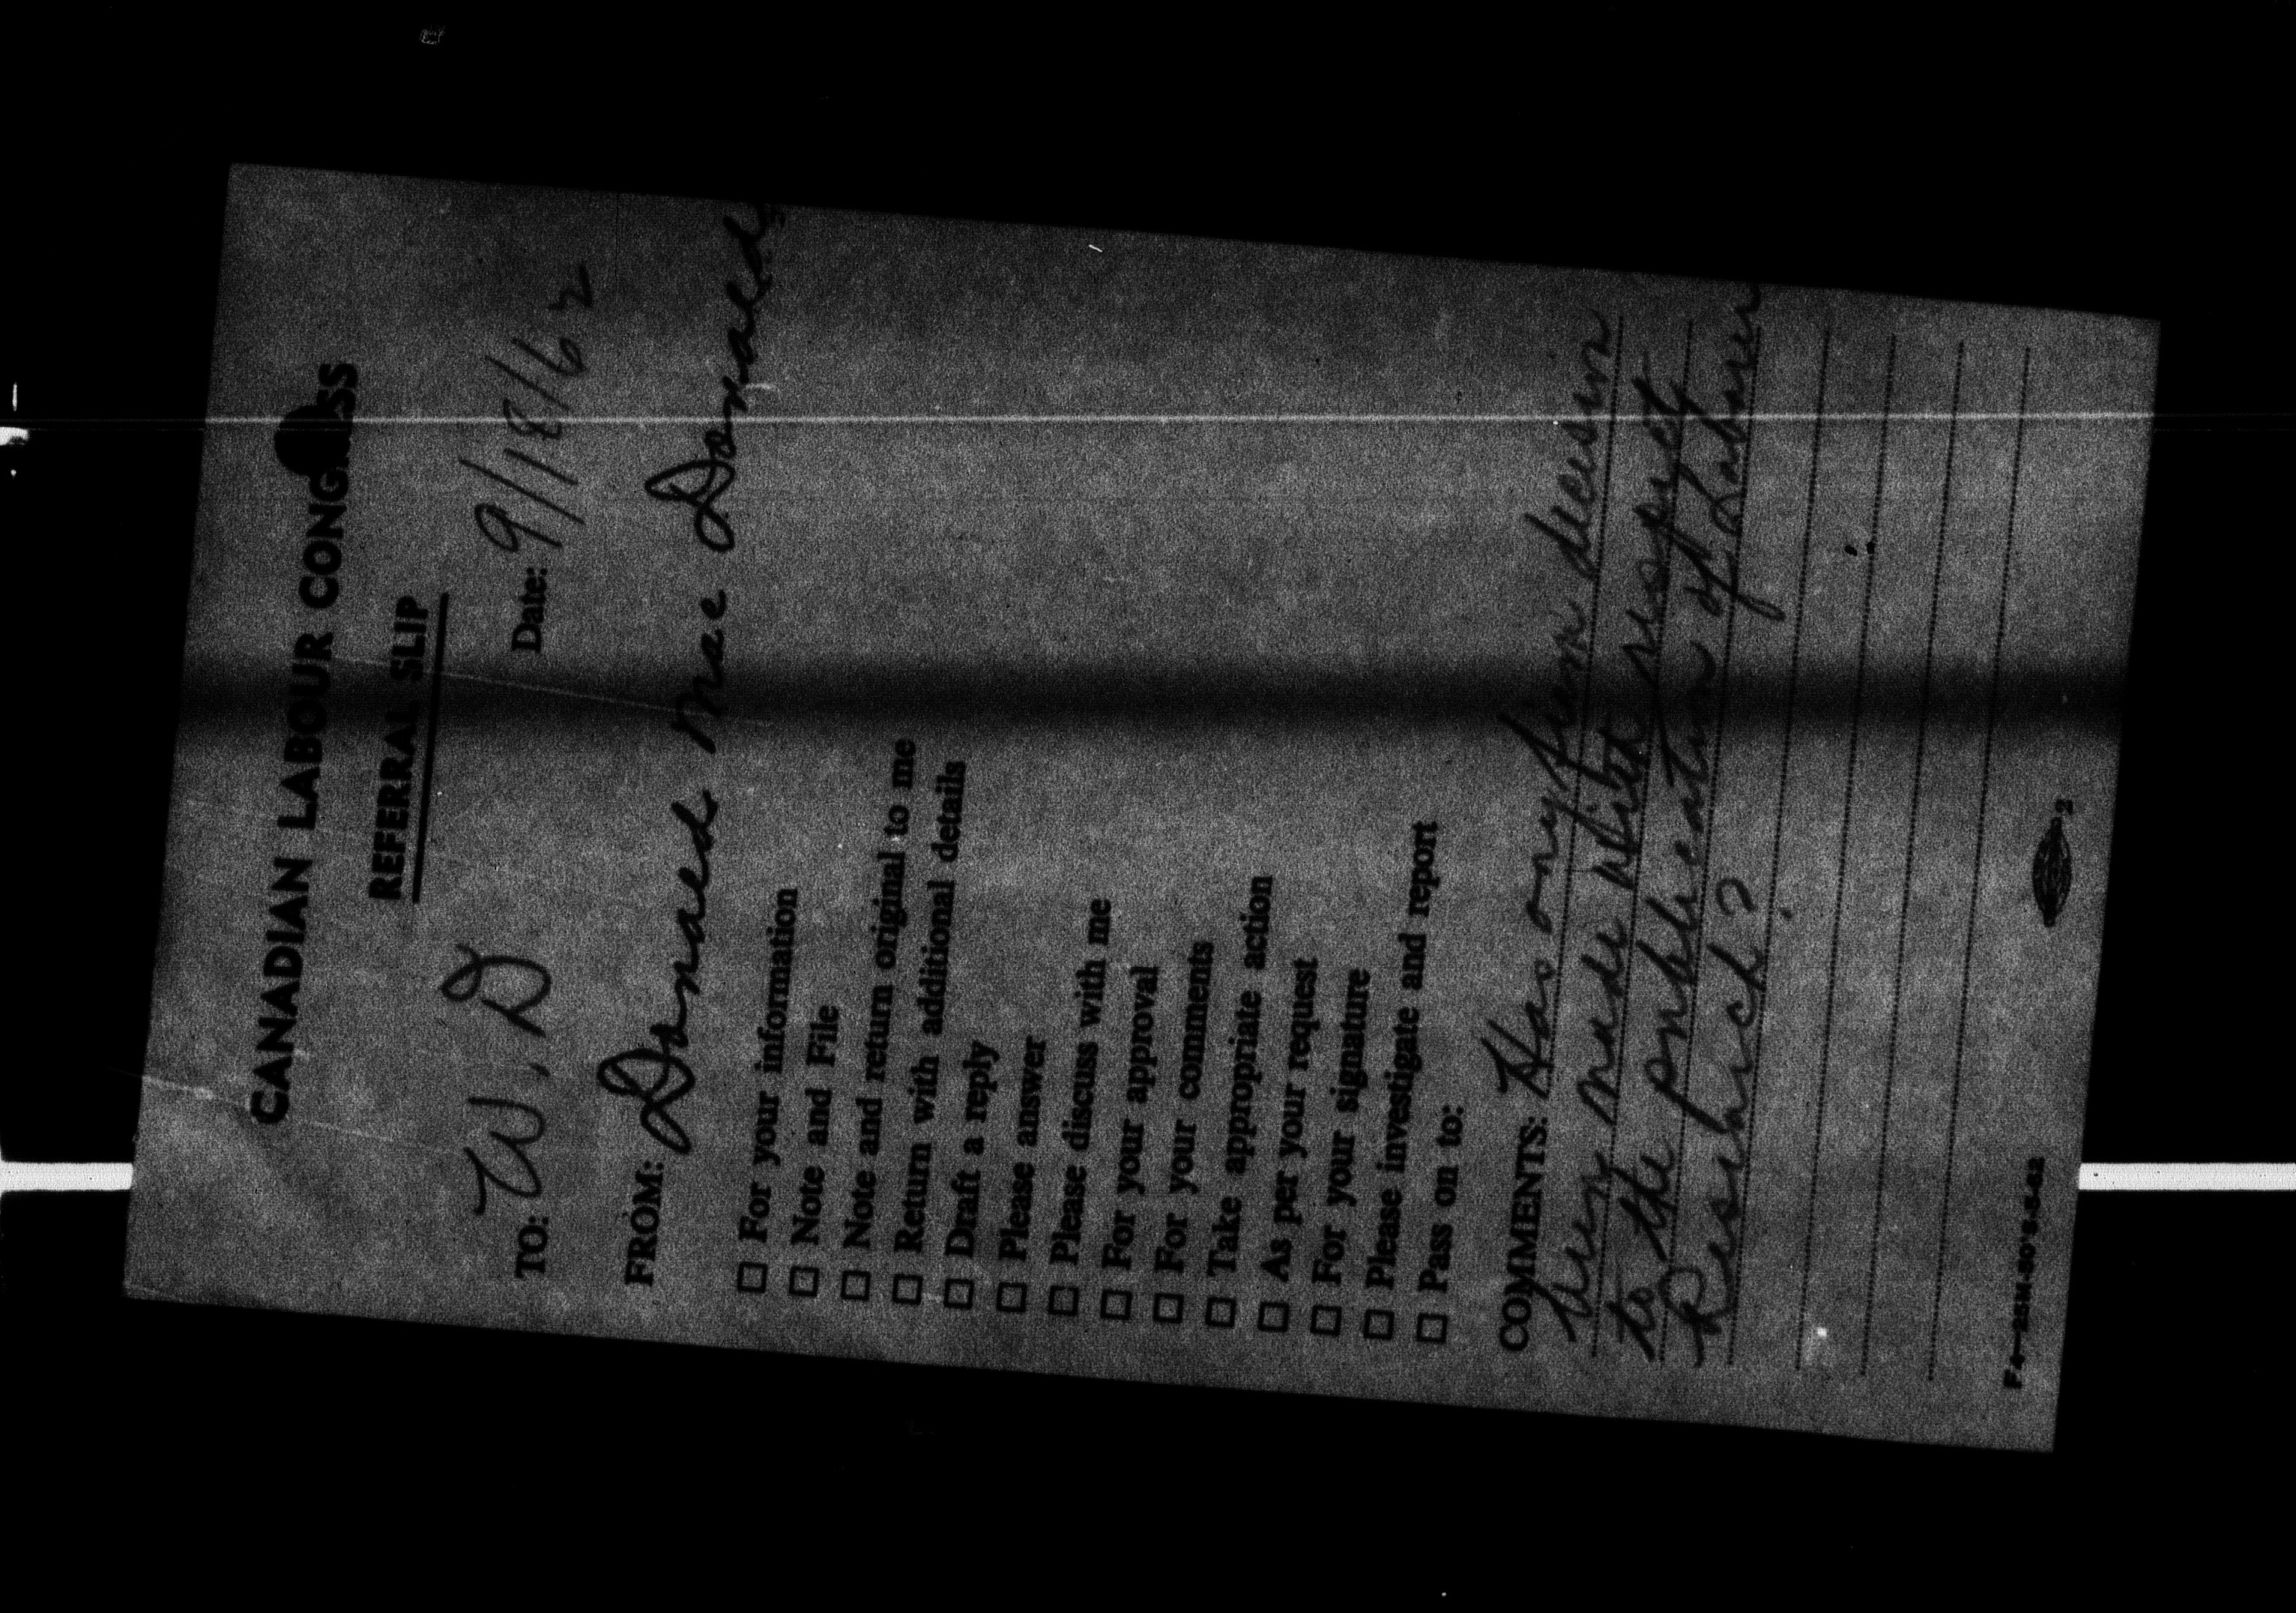 CANADIAN LABOUR CONGRESS
REFERRAL SLIP
TO: W.D Date: 9/18/62
FROM: Donald MacDonald
☐ For your information
☐ Note and File
☐ Note and return original to me
☐ Return with additional details
☐ Draft a reply
☐ Please answer
☐ Please discuss with me
☐ For your approval
☐ For your comments
☐ Take appropriate action
☐ As per your request
☐ For your signature
☐ Please investigate and report
☐ Pass on to:
COMMENTS: Has any firm decision
been made with respect
to the publication of Labour
Research?
F4—25M-50's-5-62
2